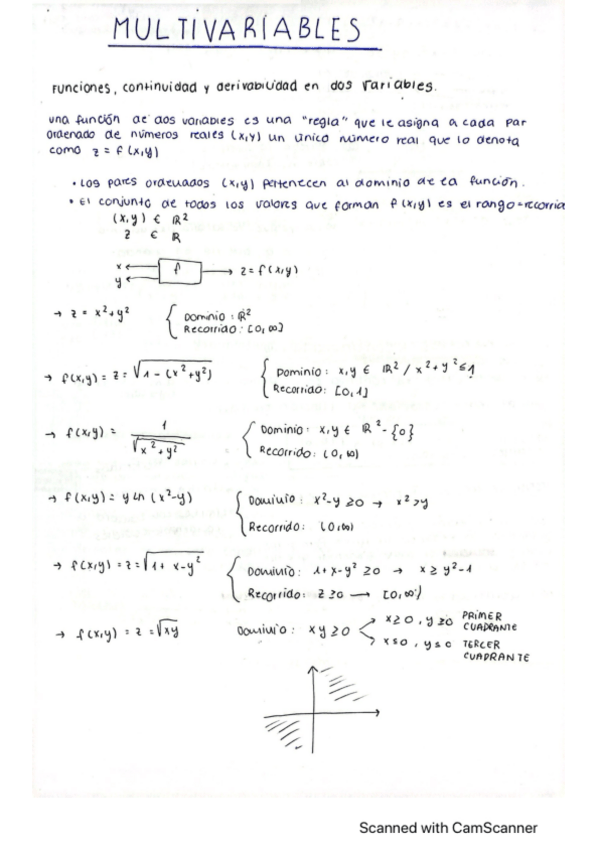 MULTIVARIABLES
Funciones, continuidad y derivabilidad en dos variables.
una función de dos variables es una "regla" que le asigna a cada par
ordenado de números reales (x,y) un único número real que lo denota
como z = f(x,y)
• Los pares ordenados (x,y) pertenecen al dominio de la función.
• El conjunto de todos los valores que forman f(x,y) es el rango-recorria
(x,y) ∈ ℝ²
z ∈ ℝ
x ← f → z = f(x,y)
y ←
→ z = x²+y² { Dominio : ℝ²
Recorrido : [0,∞]
→ f(x,y) = z = √1 - (x²+y²) { Dominio : x,y ∈ ℝ² / x²+y² ≤ 1
Recorrido : [0,1]
→ f(x,y) = 1/√x²+y² { Dominio : x,y ∈ ℝ² - {0}
Recorrido : (0,∞)
→ f(x,y) = y ln (x²-y) { Dominio : x²-y ≥0 → x² >y
Recorrido : (0,∞)
→ f(x,y) = z = √1+ x-y² { Dominio : 1+x-y² ≥0 → x ≥ y²-1
Recorrido : z ≥0 → [0,∞)
→ f(x,y) = z = √xy Dominio : xy ≥0 x≥0 , y≥0 PRIMER CUADRANTE
x≤0 , y≤0 TERCER CUADRANTE
Scanned with CamScanner